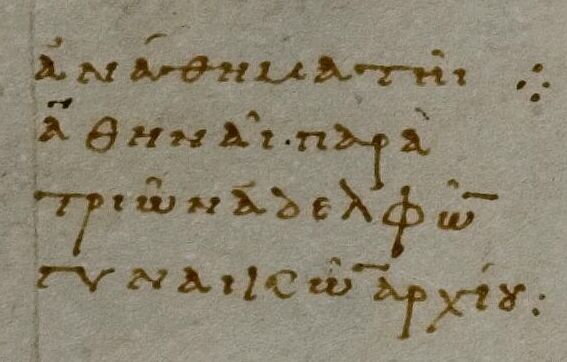 ἀνάθημα τῆι ⁘
ἀθηνᾶι · παρὰ
τριῶν ἀδελφῶ̅
γυναικῶ̅ ἀρχίου :